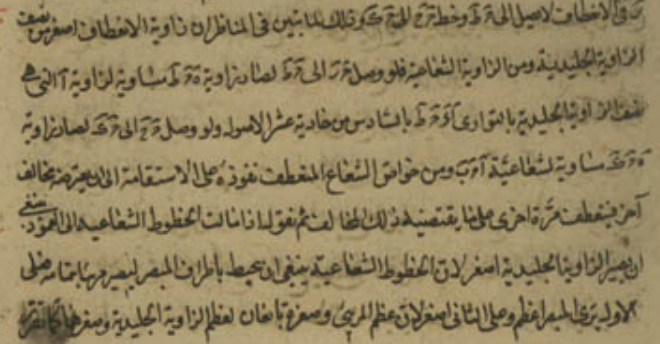 في الانعطاف لا يصل الى ة ط وخط ة ح الى ة ك وذلك لما تبين في المناظر ان زاوية الانعطاف اصغر من نصف
الزاوية الجليدية ومن الزاوية الشعاعية فلو وصل الى ة ط لصار زاوية ة ط مساوية لزاوية آ التي هي
نصف الزاوية الجليدية بالتوازي بالسادس من حادية عشر الاصول ولو وصل ة ح الى لصار زاوية
مساوية لشعاعية ومن خواص الشعاع المنعطف نفوذه على الاستقامة الى ان يعترضه مخالف
آخر فينعطف مرة اخرى على ما يقتضيه ذلك المخالف ثم نقول اذا مالت الخطوط الشعاعية الى العمود ينبغي
ان يصير الزاوية الجليدية اصغر لان الخطوط الشعاعية ينبغي ان يحيط باطراف المبصر ليصير مرئيا بتمامه فعلى
الاول يرى المبصر اعظم وعلى الثاني اصغر لان عظم المرئي وصغره تابعان لعظم الزاوية الجليدية وصغرها كما تقرر